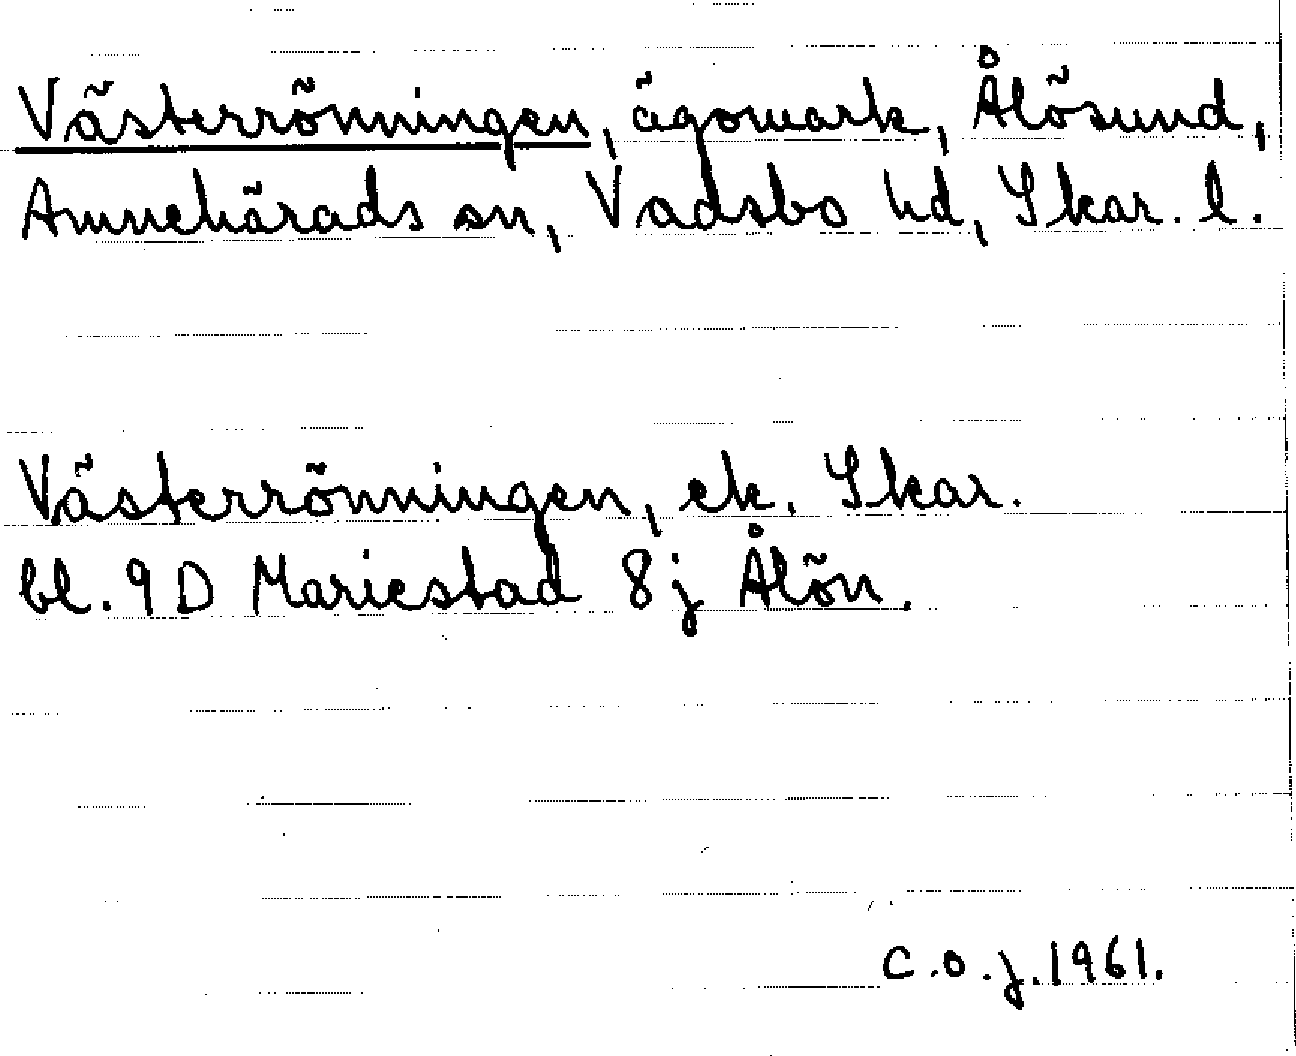 Västerrönningen, ägomark, Ålösund,
Amnehärads sn, Vadsbo hd, Skar. l.
Västerrönningen, ek. Skar.
bl. 9D Mariestad 8j Ålön.
C.O.J. 1961.